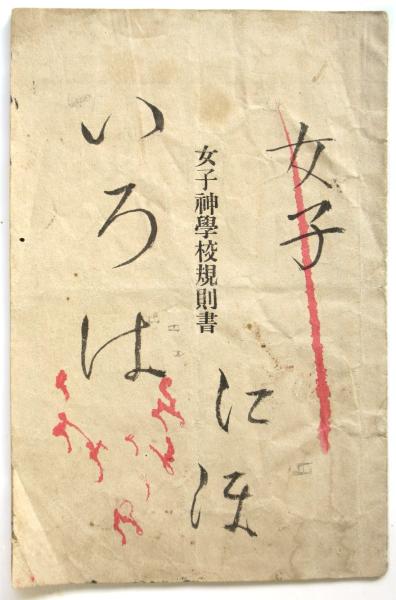 女子
女子神學校規則書
にほ
いろは